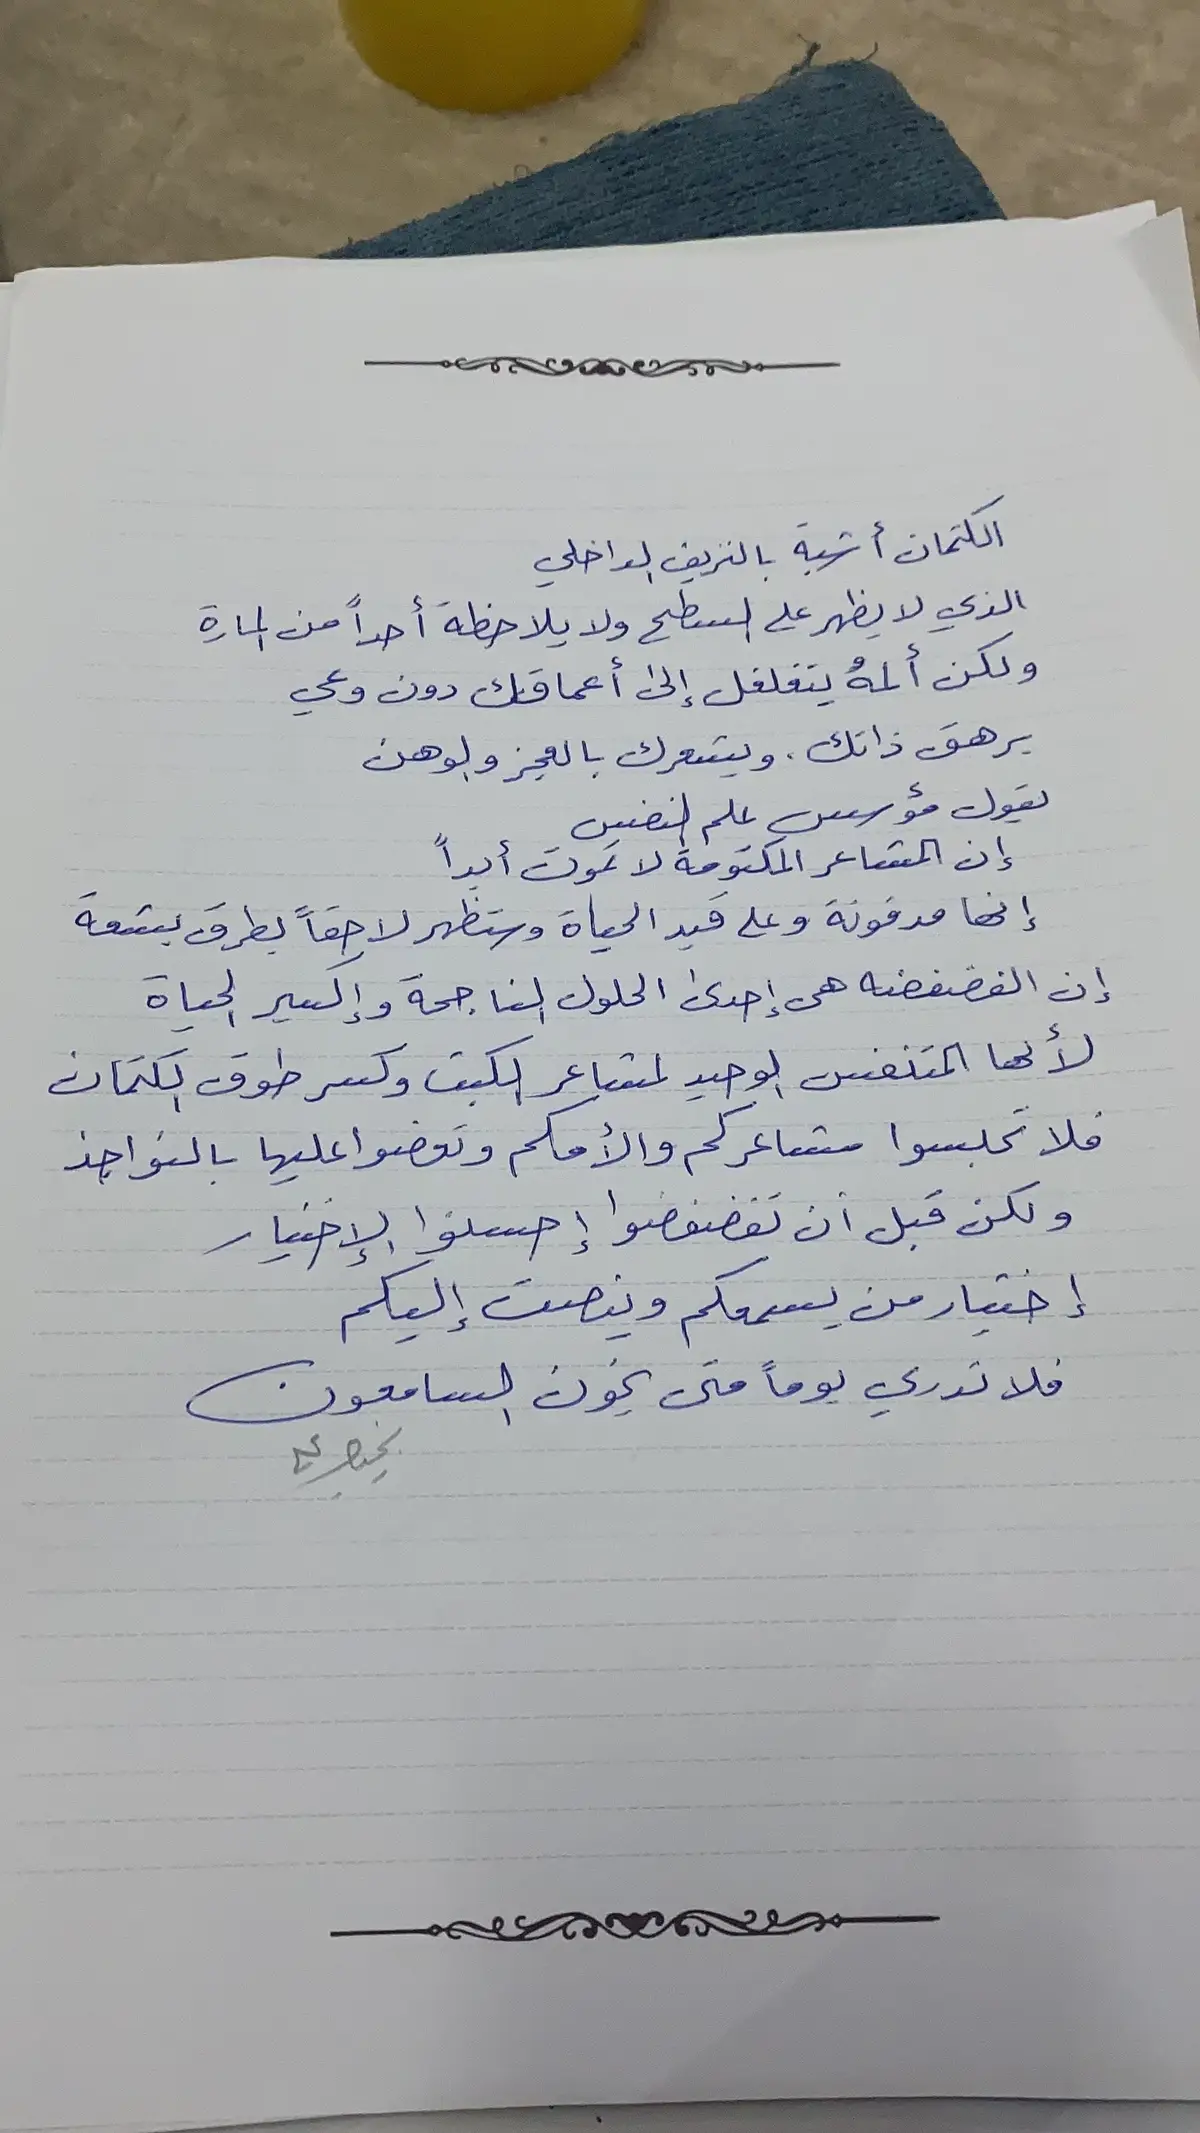 الكتمان أشبة بالنزيف الداخلي
الذي لا يظهر على السطح ولا يلاحظة أحداً من المارة
ولكن ألمهُ يتغلغل إلى أعماقك دون وعي
يرهق ذاتك. ويشعرك بالعجز والوهن
يقول مؤسس علم النفس
إن المشاعر المكتومة لا تموت أبداً
إنها مدفونة وعلى قيد الحياة وستظهر لاحقاً بطرق بشعة
إن الفضفضه هي إحدى الحلول الناجحة وإكسير الحياة
لأنها المتنفس الوحيد لمشاعر الكبت وكسر طوق الكتمان
فلا تحبسوا مشاعركم والأمكم وتعضوا عليها بالنواجذ
ولكن قبل أن تفضفضوا إحسنوا الإختيار
إختيار من يسمعكم وينصت إليكم
فلا تدري يوماً متى يخون السامعون